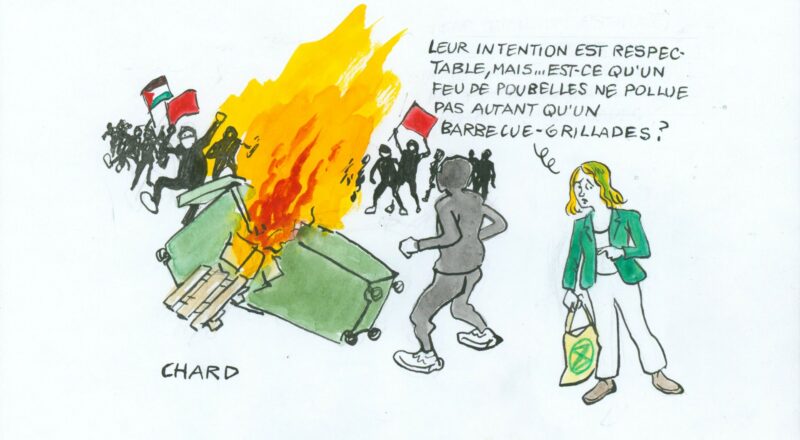 LEUR INTENTION EST RESPEC-
TABLE, MAIS...EST-CE QU'UN
FEU DE POUBELLES NE POLLUE
PAS AUTANT QU'UN
BARBECUE-GRILLADES?
CHARD